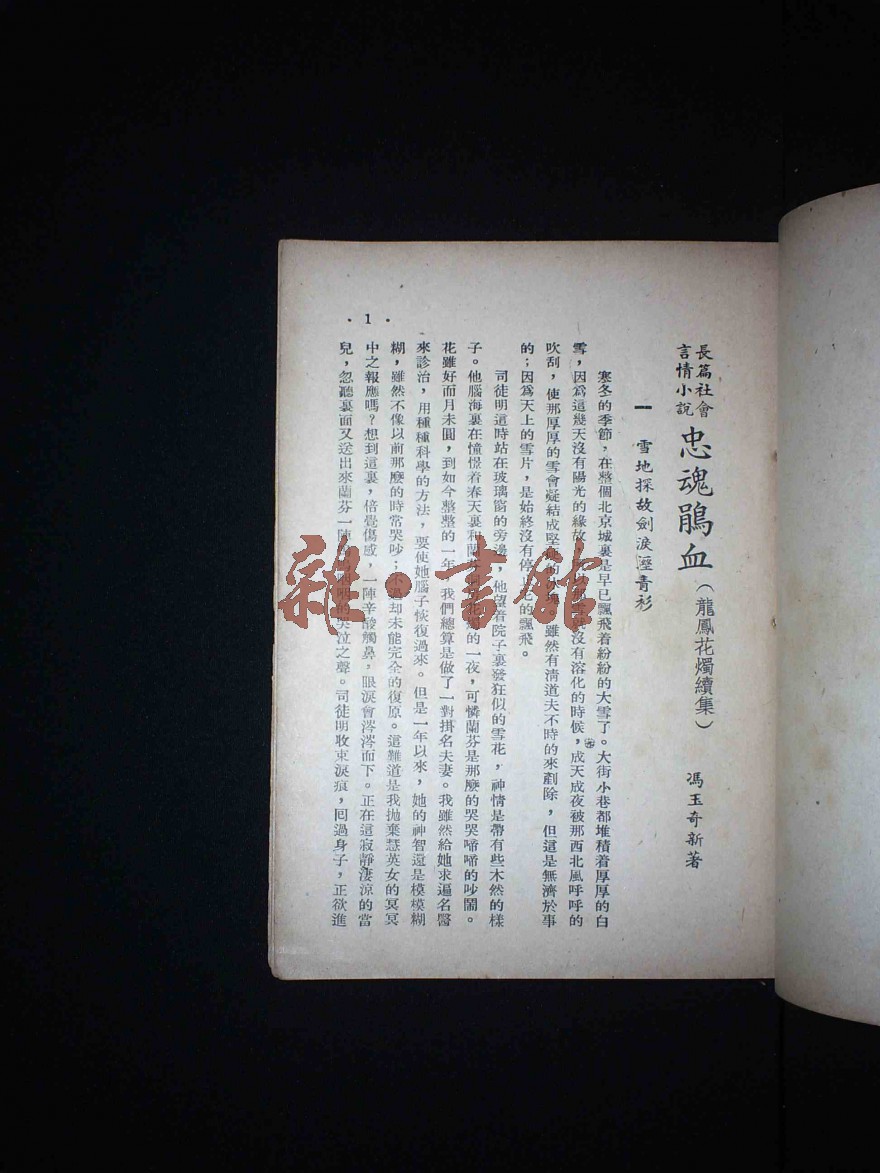 長篇社會
言情小說
忠魂鵑血（龍鳳花燭續集）
馮玉奇新著
一　雪地探故劍淚溼青衫
寒冬的季節，在整個北京城裏是早已飄飛着紛紛的大雪了。大街小巷都堆積着厚厚的白
雪，因爲這幾天沒有陽光的緣故，所以那雪就沒有溶化的時候，成天成夜被那西北風呼呼的
吹刮，使那厚厚的雪會凝結成堅硬的冰塊。雖然有清道夫不時的來剷除，但這是無濟於事
的；因爲天上的雪片，是始終沒有停止它的飄飛。
司徒明這時站在玻璃窗的旁邊，他望着院子裏發狂似的雪花，神情是帶有些木然的樣
子。他腦海裏在憧憬着春天裏和蘭芬洞房花燭的一夜，可憐蘭芬是那麼的哭哭啼啼的吵鬧。
花雖好而月未圓，到如今整整的一年，我們總算是做了一對掛名夫妻。我雖然給她求遍名醫
來診治，用種種科學的方法，要使她腦子恢復過來。但是一年以來，她的神智還是模模糊
糊，雖然不像以前那麼的時常哭吵；不過却未能完全的復原。這難道是我拋棄慧英女的冥冥
中之報應嗎？想到這裏，倍覺傷感，一陣辛酸觸鼻，眼淚會涔涔而下。正在這寂靜淒涼的當
兒，忽聽裏面又送出來蘭芬一陣嗚嗚咽咽的哭泣之聲。司徒明收束淚痕，囘過身子，正欲進
· 1 ·
雜·書館